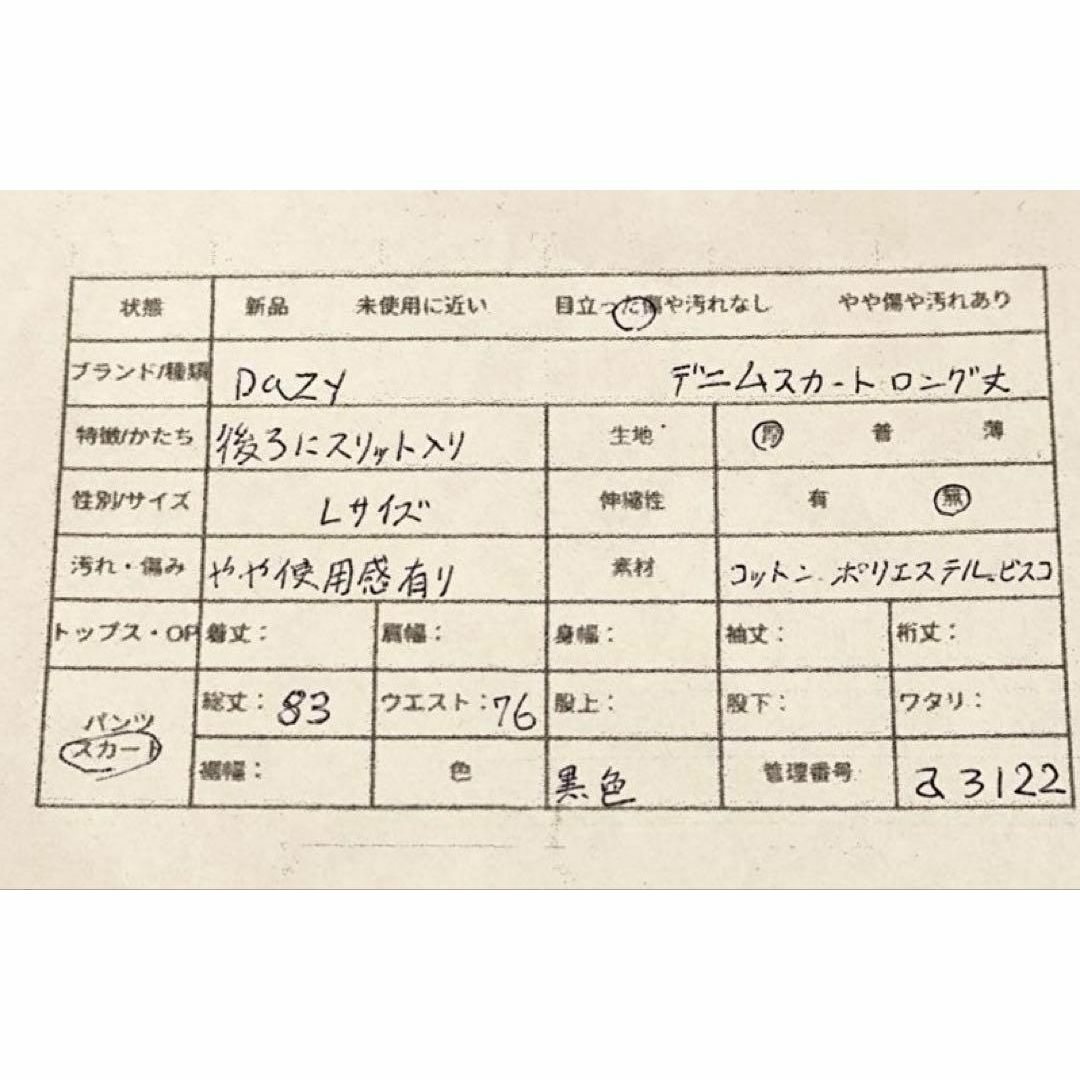 状態 新品 未使用に近い 目立った傷や汚れなし やや傷や汚れあり
ブランド/種類 DaZy デニムスカート ロング丈
特徴/かたち 後ろにスリット入り 生地 厚 普 薄
性別/サイズ Lサイズ 伸縮性 有 無
汚れ・傷み やや使用感有り 素材 コットン、ポリエステル、ビスコ
トップス・OP 着丈: 肩幅: 身幅: 袖丈: 裄丈:
パンツ
スカート
総丈: 83 ウエスト: 76 股上: 股下: ワタリ:
裾幅: 色 黒色 管理番号 a3122